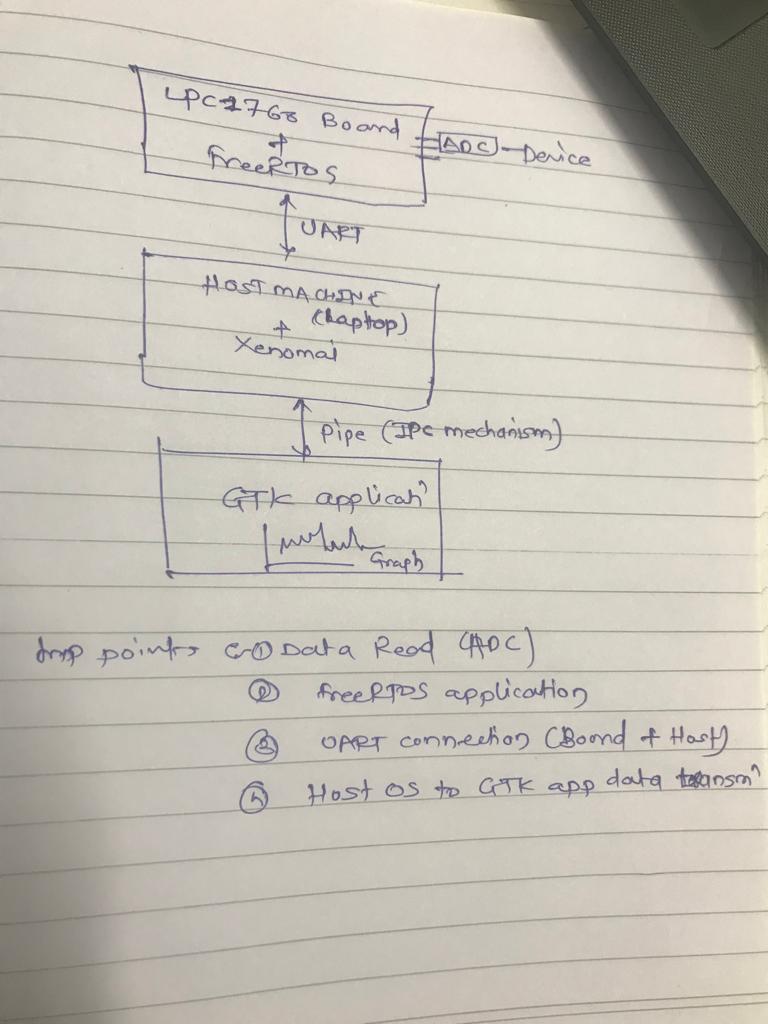 LPC1768 Board
+
FreeRTOS
ADC - Device
UART
HOST MACHINE
(Laptop)
+
Xenomai
Pipe (IPC mechanism)
GTK applicatⁿ
Graph
Imp points ① Data Read (ADC)
② FreeRTOS application
③ UART connection (Board + Host)
④ Host OS to GTK app data transmⁿ